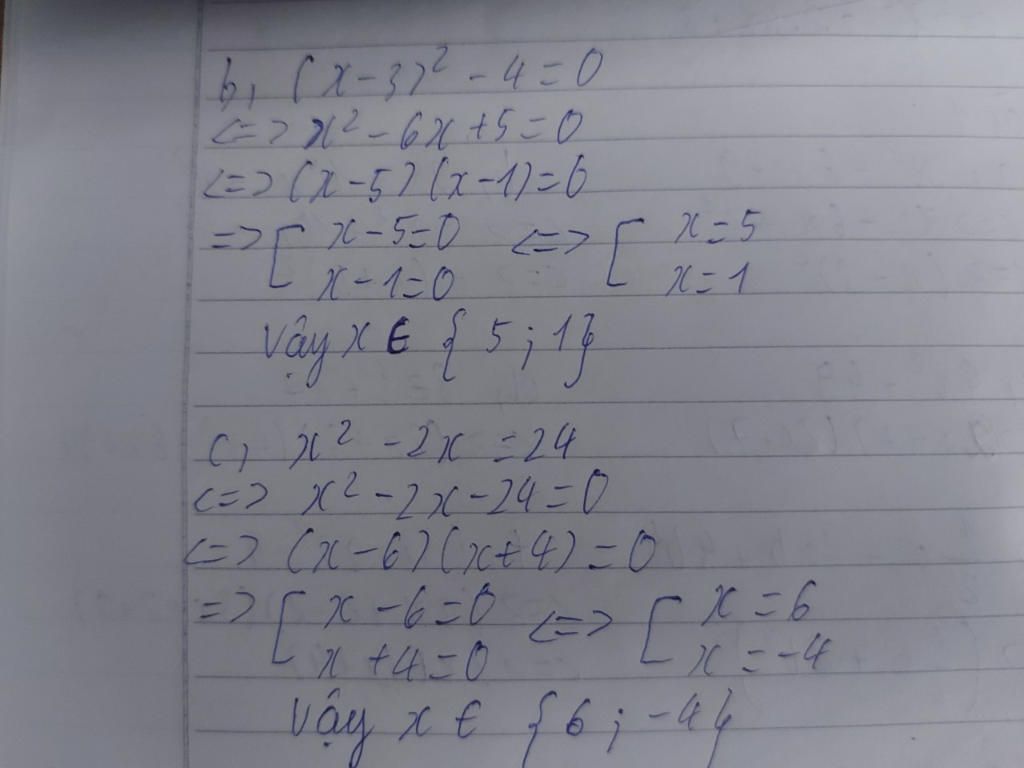 b, (x-3)² - 4 = 0
<=> x² - 6x + 5 = 0
<=> (x-5)(x-1) = 0
=> [ x-5=0 <=> [ x=5
x-1=0 x=1
Vậy x ∈ {5;1}
c, x² - 2x = 24
<=> x² - 2x - 24 = 0
<=> (x-6)(x+4) = 0
=> [ x-6=0 <=> [ x=6
x+4=0 x=-4
Vậy x ∈ {6;-4}